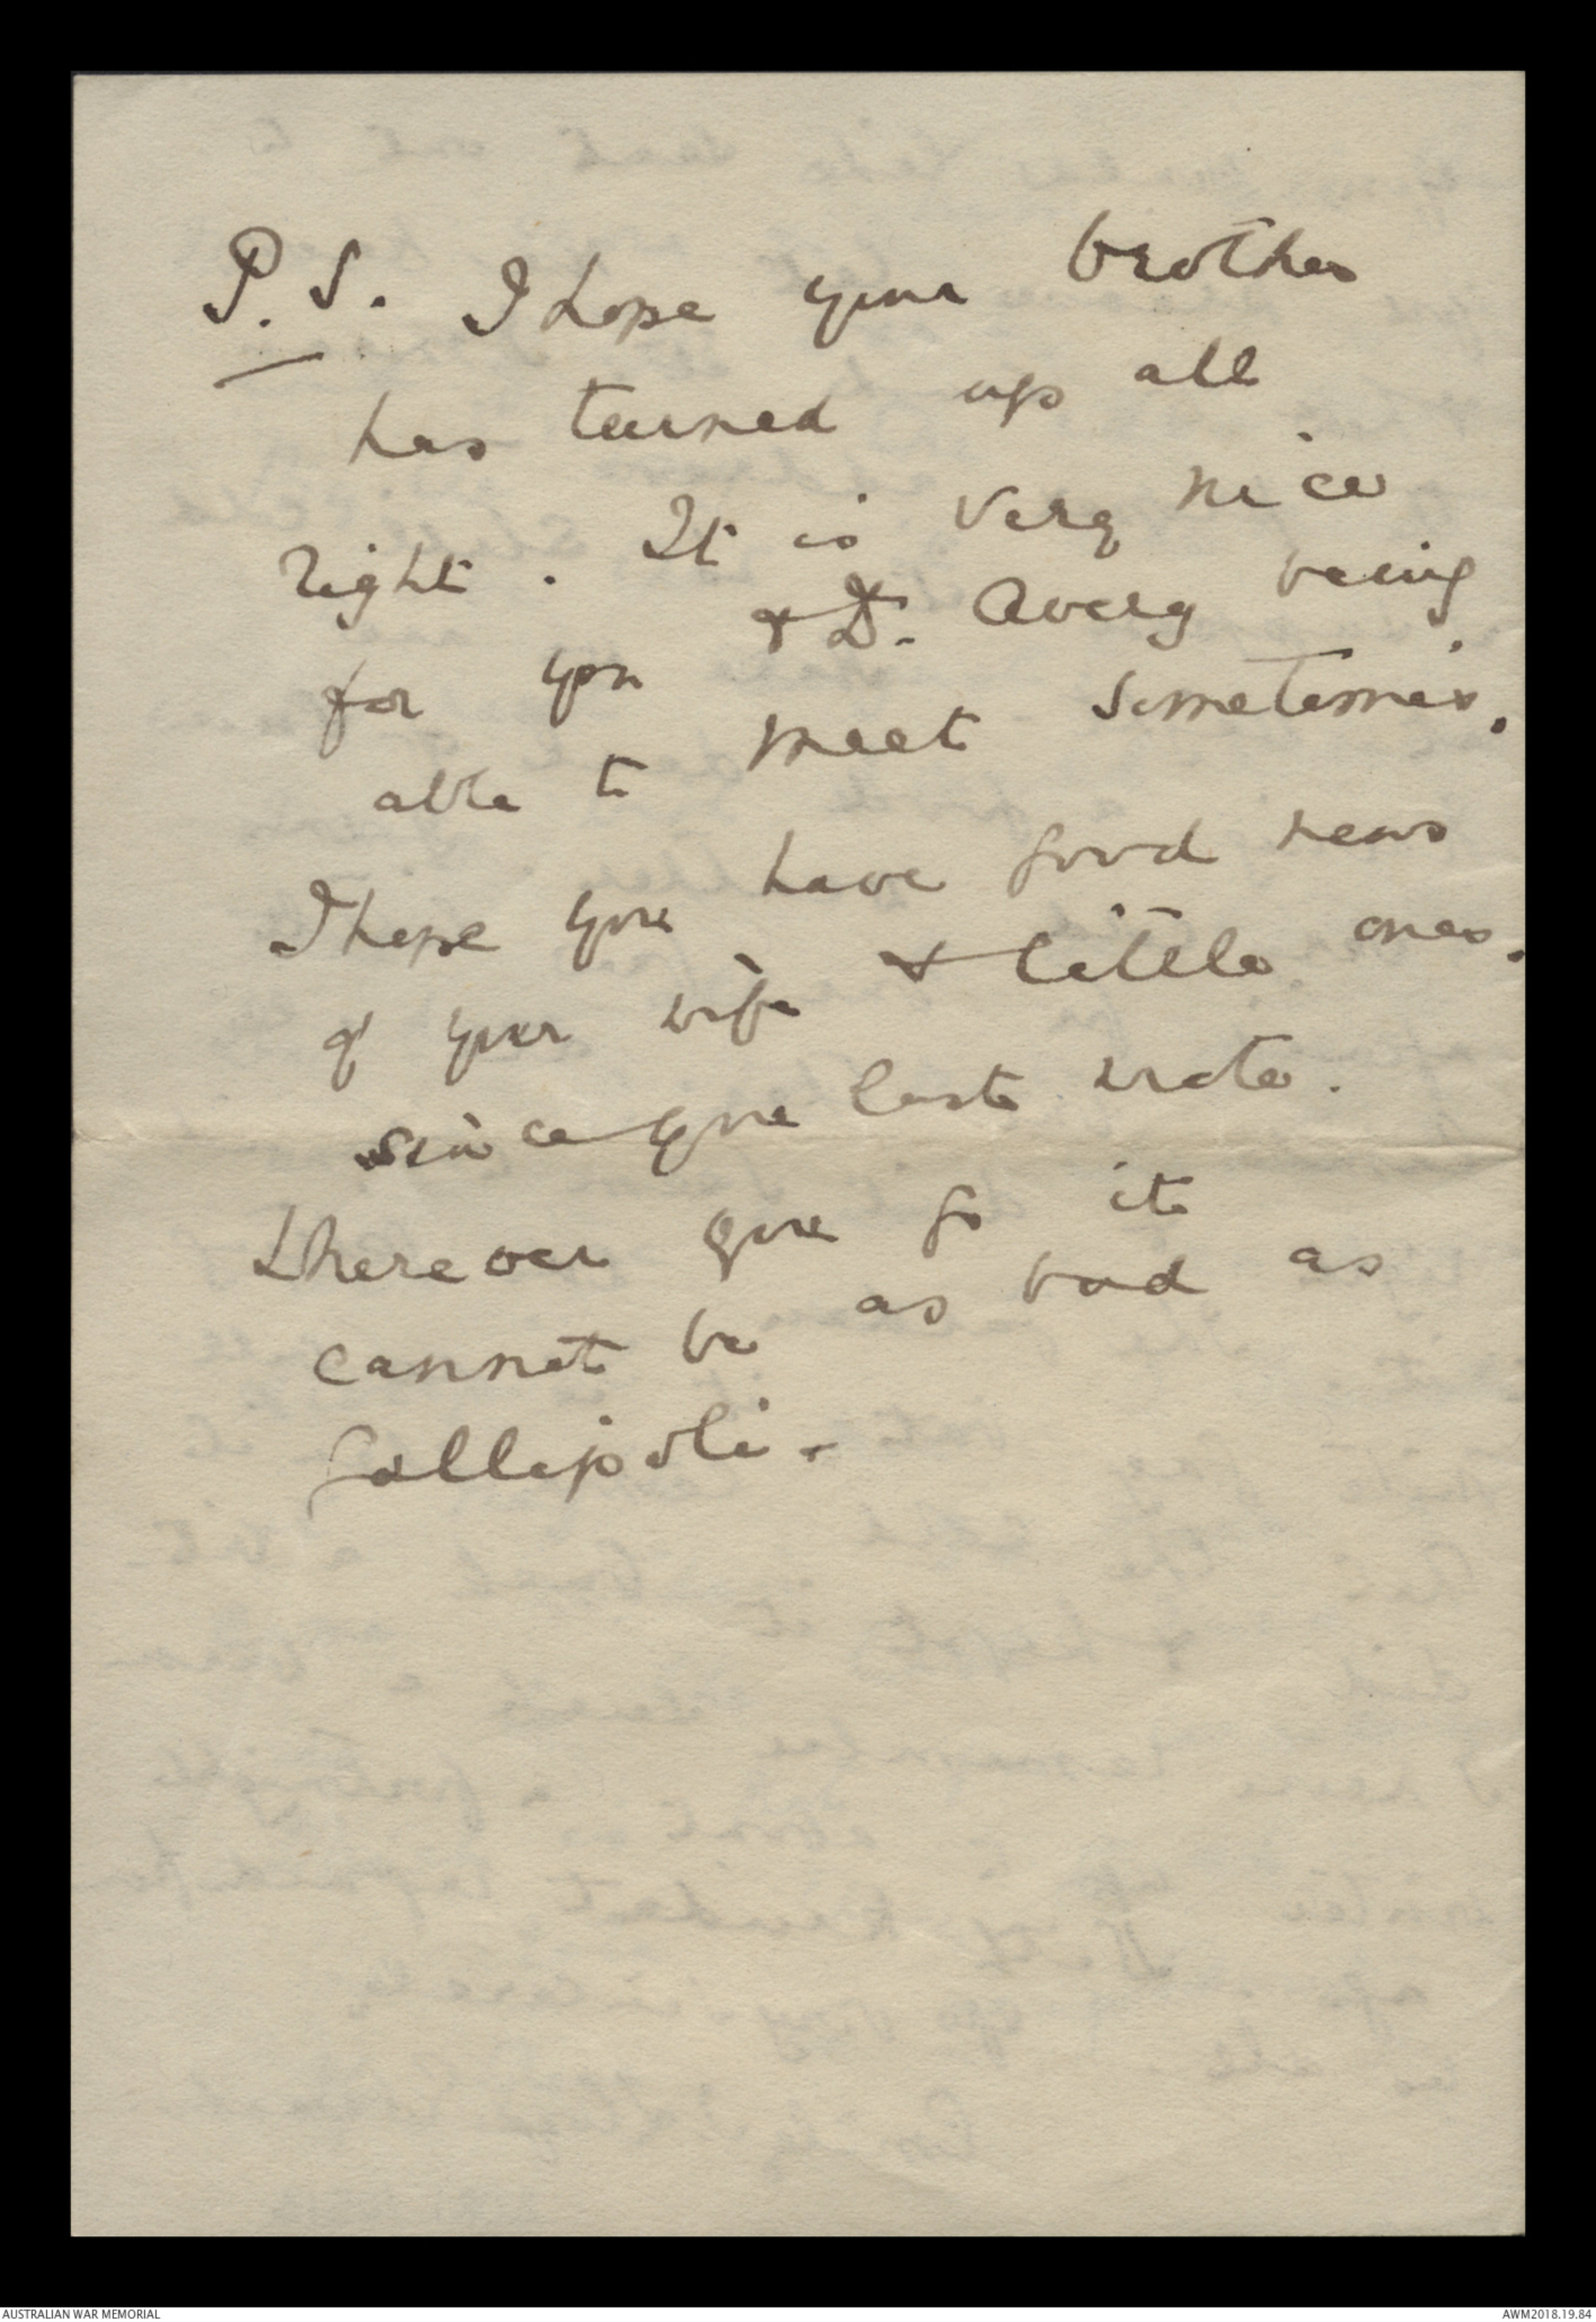 P.S. I hope your brother
has turned up all
right. It is very nice
for you & D. Avery being
able to meet sometimes.
I hope you have good news
of your wife & little ones.
since you last wrote.
Whereever you go it
cannot be as bad as
Gallipoli.
AUSTRALIAN WAR MEMORIAL
AWM2018.19.84